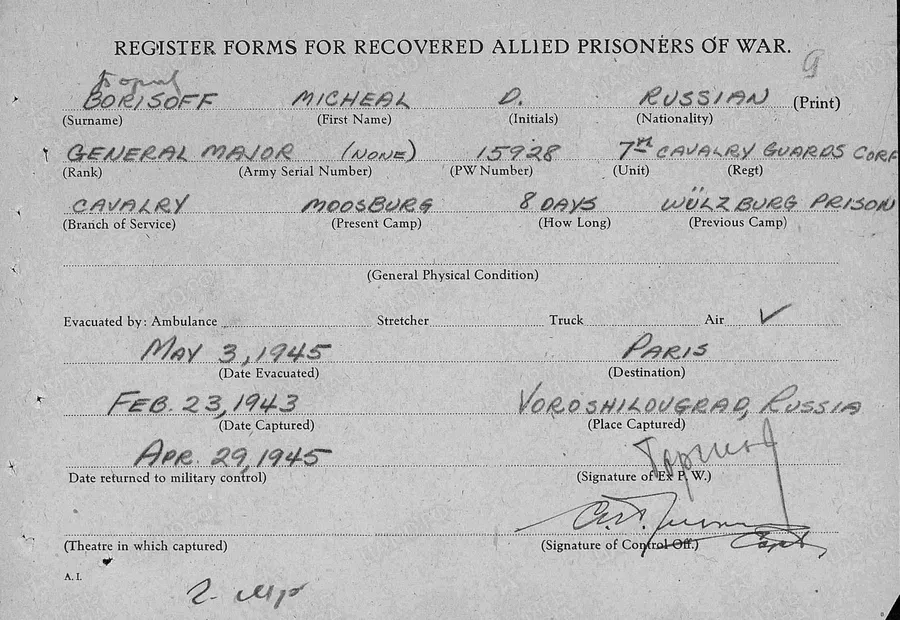 REGISTER FORMS FOR RECOVERED ALLIED PRISONERS OF WAR.
9
BORISOFF MICHEAL D. RUSSIAN (Print)
(Surname) (First Name) (Initials) (Nationality)
GENERAL MAJOR (NONE) 15928 7TH CAVALRY GUARDS CORP
(Rank) (Army Serial Number) (PW Number) (Unit) (Regt)
CAVALRY MOOSBURG 8 DAYS WÜLZBURG PRISON
(Branch of Service) (Present Camp) (How Long) (Previous Camp)
(General Physical Condition)
Evacuated by: Ambulance Stretcher Truck Air ✓
MAY 3, 1945 PARIS
(Date Evacuated) (Destination)
FEB. 23, 1943 VOROSHILOUGRAD, RUSSIA
(Date Captured) (Place Captured)
APR. 29, 1945
Date returned to military control) (Signature of Ex P. W.)
Capt
(Theatre in which captured) (Signature of Control Off.)
A. I.